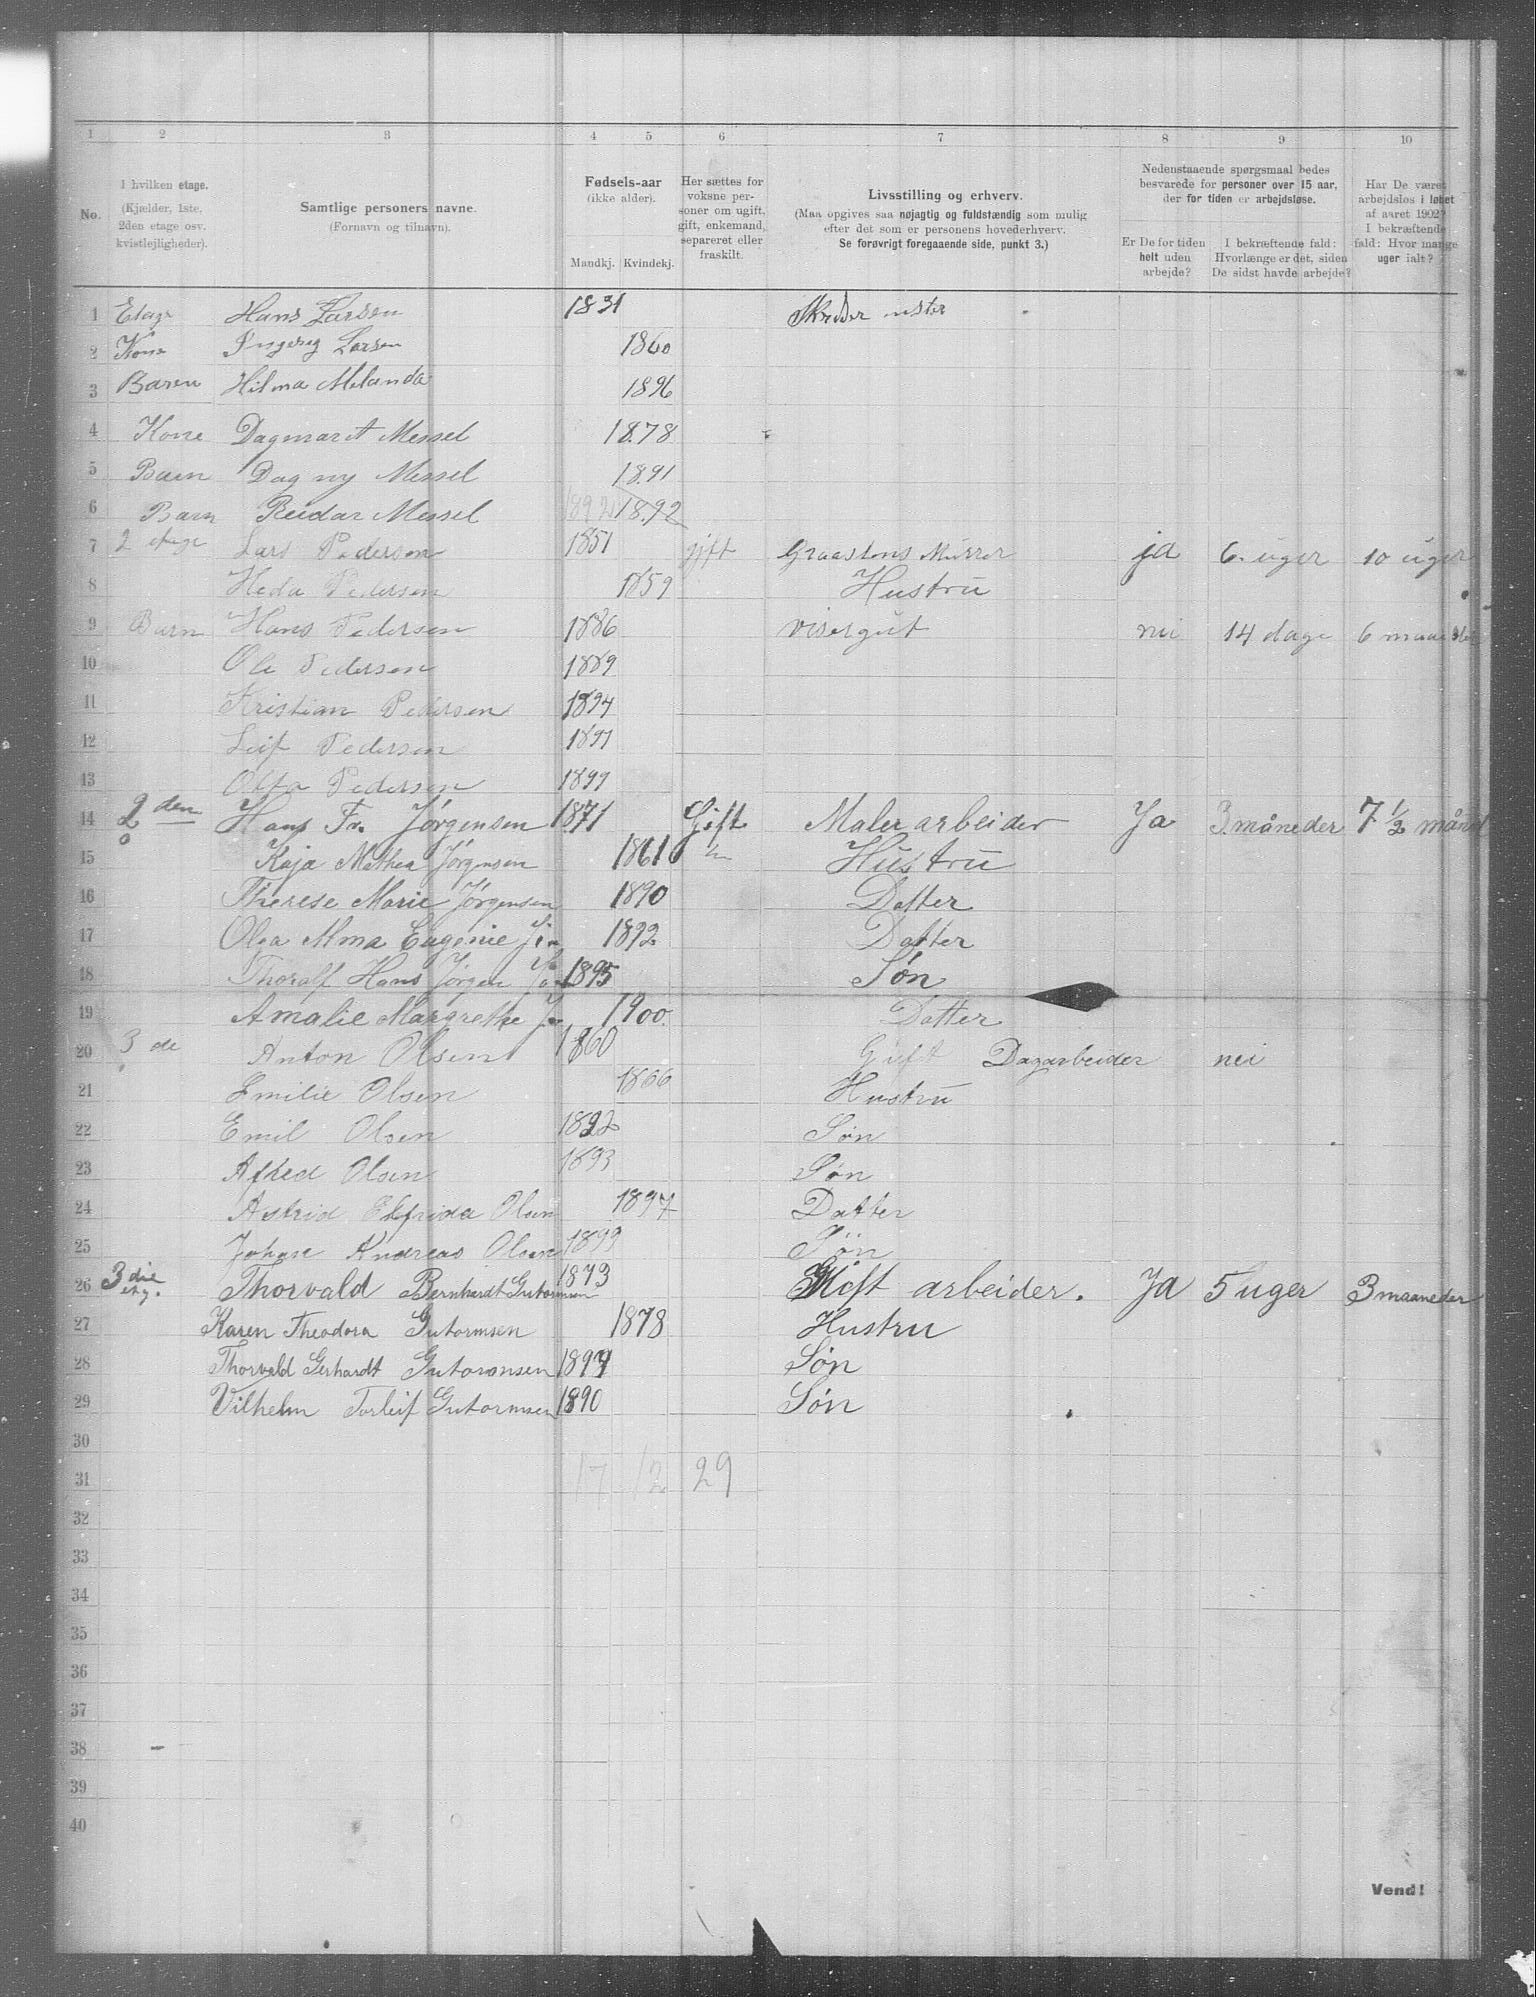 1 2 3 4 5 6 7 8 9 10
No.
I hvilken etage.
(Kjælder, 1ste, 2den etage osv. kvistlejligheder).
Samtlige personers navne.
(Fornavn og tilnavn).
Fødsels-aar
(ikke alder).
Mandkj. Kvindekj.
Her sættes for voksne personer om ugift, gift, enkemand, separeret eller fraskilt.
Livsstilling og erhverv.
(Maa opgives saa nøjagtig og fuldstændig som mulig efter det som er personens hovederhverv.
Se forøvrigt foregaaende side, punkt 3.)
Nedenstaaende spørgsmaal bedes besvarede for personer over 15 aar, der for tiden er arbejdsløse.
Er De for tiden helt uden arbejde?
I bekræftende fald: Hvorlænge er det, siden De sidst havde arbejde?
Har De været arbejdsløs i løbet af aaret 1902? I bekræftende fald: Hvor mange uger ialt?
1 Etage Hans Larsen 1831
2 Kone Ingeseg Larsen 1860
3 Baren Hilma Milanda 1896
4 Kone Dagmar Messel 1878
5 Barn Dagny Messel 1891
6 Barn Reidar Messel 1892 1892
7 2 etage Lars Pedersen 1851 gift Graastens Murer ja 6 uger 10 uger
8 Heda Pedersen 1859 Hustru
9 Barn Hans Pedersen 1886 visergut nei 14 dage 6 maaneder
10 Ole Pedersen 1889
11 Kristian Pedersen 1894
12 Leif Pedersen 1897
13 Pedersen 1899
14 2den Hans Fr. Jørgensen 1871 Gift Malerarbeider Ja 3 måneder 7 1/2 månd
15 Kaja Mathea Jørgensen 1861 Hustru
16 Therese Marie Jørgensen 1890 Datter
17 Olga Alma Eugenie 1892 Datter
18 Thoralf Hans Jørgen 1895 Søn
19 Amalie Margrethe 1900 Datter
20 3 de Anton Olsen 1860 Gift Dagarbeider nei
21 Emilie Olsen 1866 Hustru
22 Emil Olsen 1892 Søn
23 Afred Olsen 1893 Søn
24 Astrid Elfrida Olsen 1897 Datter
25 Johan Andreas Olsen 1899 Søn
26 3die etg. Thorvald Bernhardt Gutormsen 1873 Gift arbeider. Ja 5 uger 3 maaneder
27 Karen Theodora Gutormsen 1878 Hustru
28 Thorvald Gerhardt Gutormsen 1899 Søn
29 Vilhelm Torleif Gutormsen 1890 Søn
30
31 17 12 29
32
33
34
35
36
37
38
39
40
Vend!